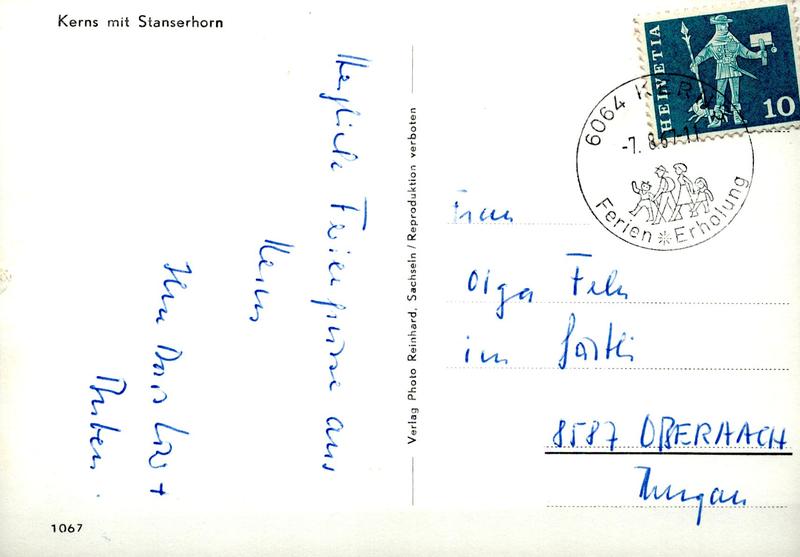 Kerns mit Stanserhorn
Herzliche Feriengrüsse aus
Kerns
Ihre Doris +
1067
Verlag Photo Reinhard, Sachseln / Reproduktion verboten
HELVETIA
10
6064 KERNS
-7. 8.67-11
Ferien Erholung
Frau
Olga
im Gärtli
8587 OBERAACH
Thurgau